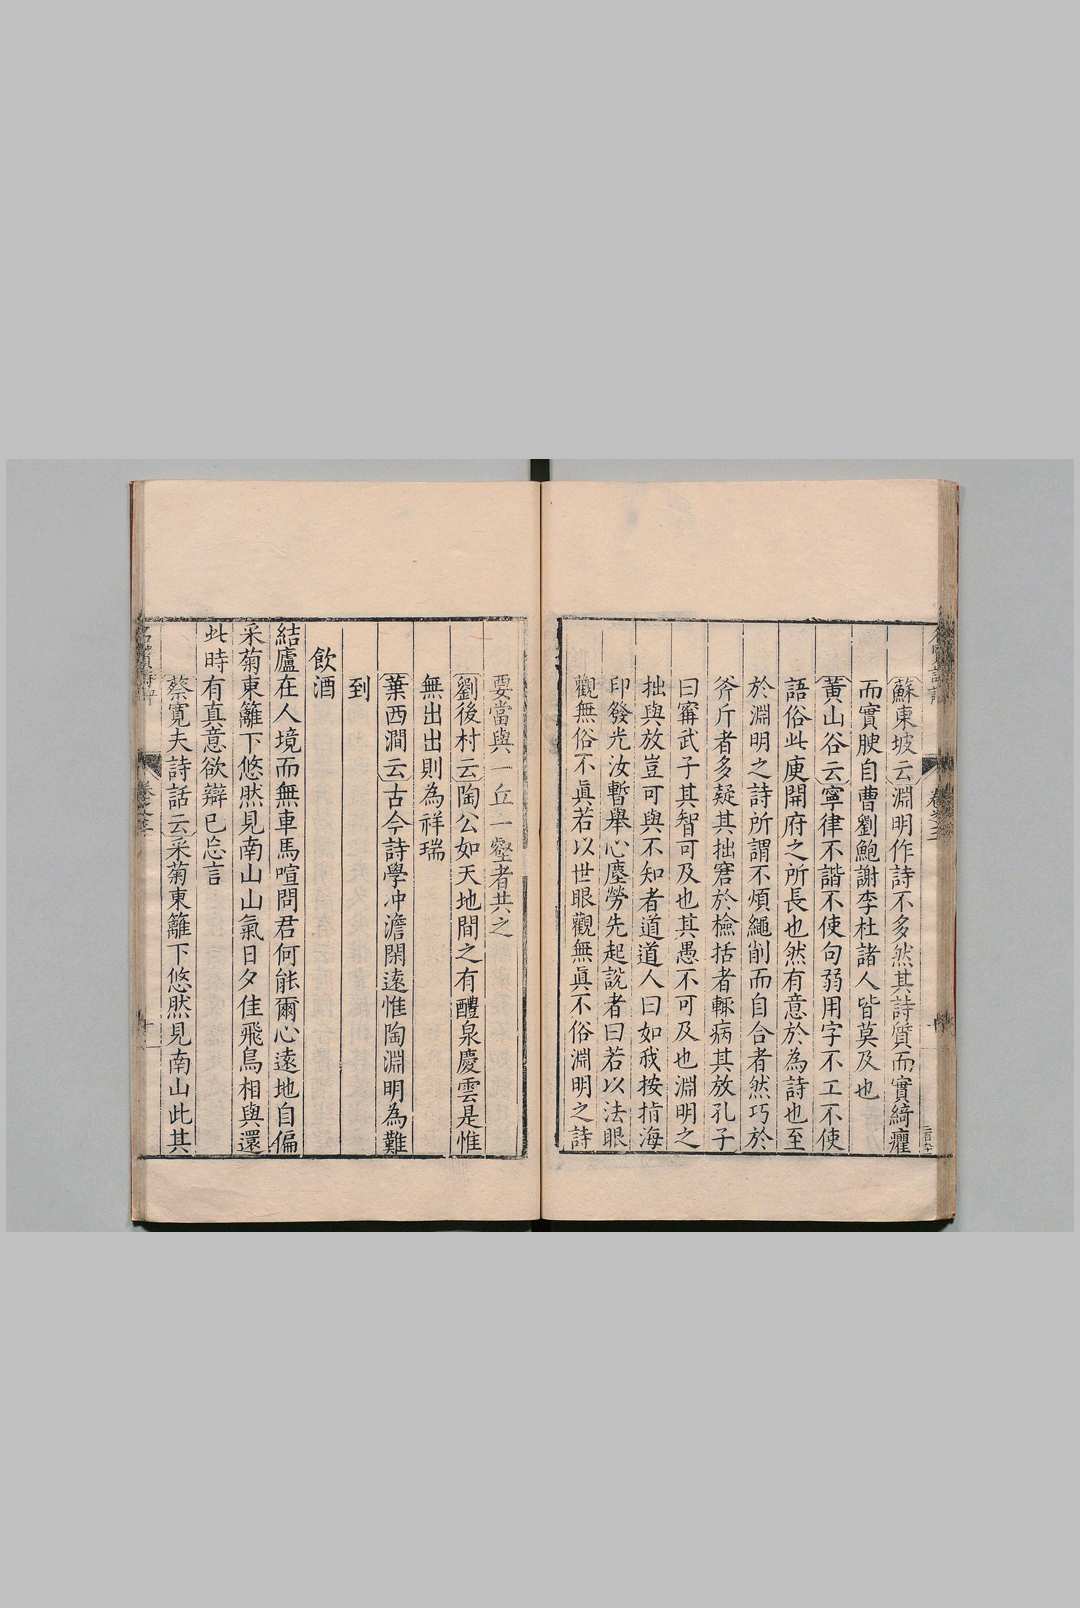 蘇東坡云淵明作詩不多然其詩質而實綺癯
而實腴自曹劉鮑謝李杜諸人皆莫及也
黃山谷云寧律不諧不使句弱用字不工不使
語俗此庾開府之所長也然有意於為詩也至
於淵明之詩所謂不煩繩削而自合者然巧於
斧斤者多疑其拙窘於檢括者輒病其放孔子
曰甯武子其智可及也其愚不可及也淵明之
拙與放豈可與不知者道道人曰如我按指海
印發光汝暫舉心塵勞先起說者曰若以法眼
觀無俗不眞若以世眼觀無眞不俗淵明之詩
要當與一丘一壑者共之
劉後村云陶公如天地間之有醴泉慶雲是惟
無出出則為祥瑞
葉西澗云古今詩學冲澹閑遠惟陶淵明為難
到
飲酒
結廬在人境而無車馬喧問君何能爾心遠地自偏
采菊東籬下悠然見南山山氣日夕佳飛鳥相與還
此時有真意欲辯已忘言
蔡寬夫詩話云采菊東籬下悠然見南山此其